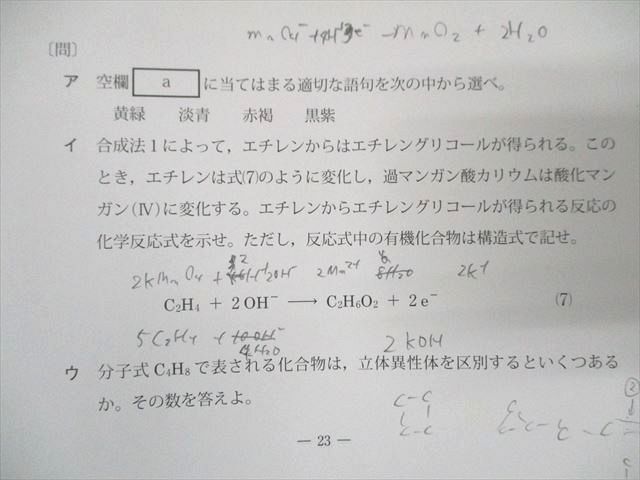 MnO4⁻ + 4H⁺ 3e⁻ → MnO2 + 2H2O
〔問〕
ア 空欄 a に当てはまる適切な語句を次の中から選べ。
黄緑 淡青 赤褐 黒紫
イ 合成法1によって，エチレンからはエチレングリコールが得られる。この
とき，エチレンは式(7)のように変化し，過マンガン酸カリウムは酸化マン
ガン(Ⅳ)に変化する。エチレンからエチレングリコールが得られる反応の
化学反応式を示せ。ただし，反応式中の有機化合物は構造式で記せ。
2KMnO4 + 2Mn²⁺ 8H2O 2K⁺
C2H4 + 2OH⁻ ⟶ C2H6O2 + 2e⁻ (7)
5C2H4 + 10OH⁻ 2KOH
4H2O
ウ 分子式C4H8で表される化合物は，立体異性体を区別するといくつある
か。その数を答えよ。
②
― 23 ―